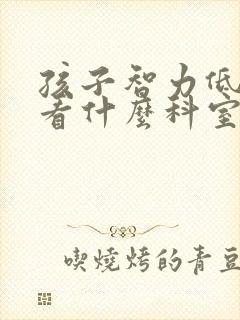 孩子智力低
看什麼科室
喫燒烤的青豆